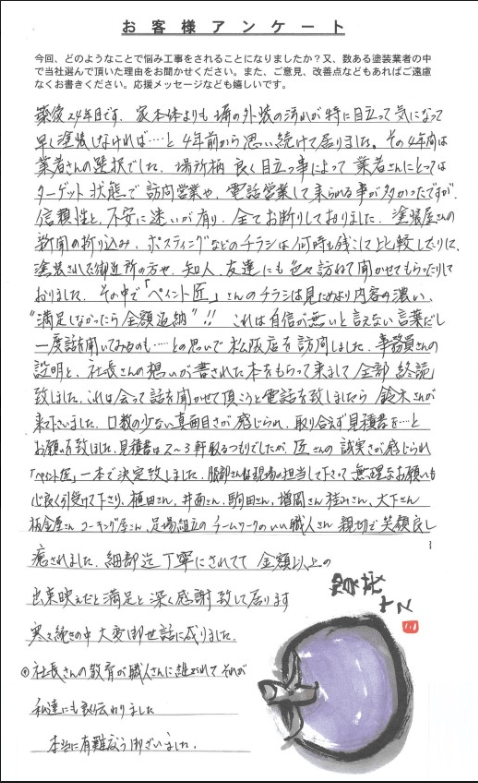 お客様アンケート
今回、どのようなことで悩み工事をされることになりましたか？又、数ある塗装業者の中
で当社選んで頂いた理由をお聞かせください。また、ご意見、改善点などもあればご遠慮
なくお書きください。応援メッセージなども嬉しいです。
築後24年目です。家本体よりも塀の外装の汚れが特に目立って気になって
早く塗装しなければ…と4年前から思い続けて居りました。その4年間は
業者さんの選択でした。場所柄良く目立つ事によって業者さんにとっては
ターゲット状態で訪問営業や、電話営業して来られる事が多かったですが、
信頼性と、不安に迷いが有り、全てお断りしておりました。塗装屋さんの
新聞の折り込み、ポスティングなどのチラシは何時も残こして比較したりして、
塗装された御近所の方や、知人、友達にも色々訪ねて聞かせてもらったりして
おりました。その中で「ペイント匠」さんのチラシは見ためより内容の濃い、
"満足しなかったら全額返納"!! これは自信が無いと言えない言葉だし
一度話を聞いてみるのも…との思いで松阪店を訪問しました。事務員さんの
説明と、社長さんの想いが書された本をもらって来まして全部終読
致しました。これは会って話を聞かせて頂こうと電話を致しましたら鈴木さんが
来て下さいました。口数の少ない真面目さが感じられ、取り合えず見積書を…と
お願い致しました。見積書は2〜3軒取るつもりでしたが匠さんの誠実さが感じられ
「ペイント匠」一本で決定致しました。服部さんは現場の担当して下さって無理なお願いも
心良く引受けて下さり、植田さん、井面さん、駒田さん、増岡さん、桂みさん、大下さん
板金屋さん、コーキング屋さん、足場組立のチームワークのいい職人さん親切で笑顔良し
癒されました。細部迄丁寧にされてて金額以上の
出来映えだと満足と深く感謝致して居ります
寒さ続きの中大変御世話に成りました。
◎社長さんの教育が職人さんに継がれてそれが
私達にも伝わりました
本当に有難う御ざいました。